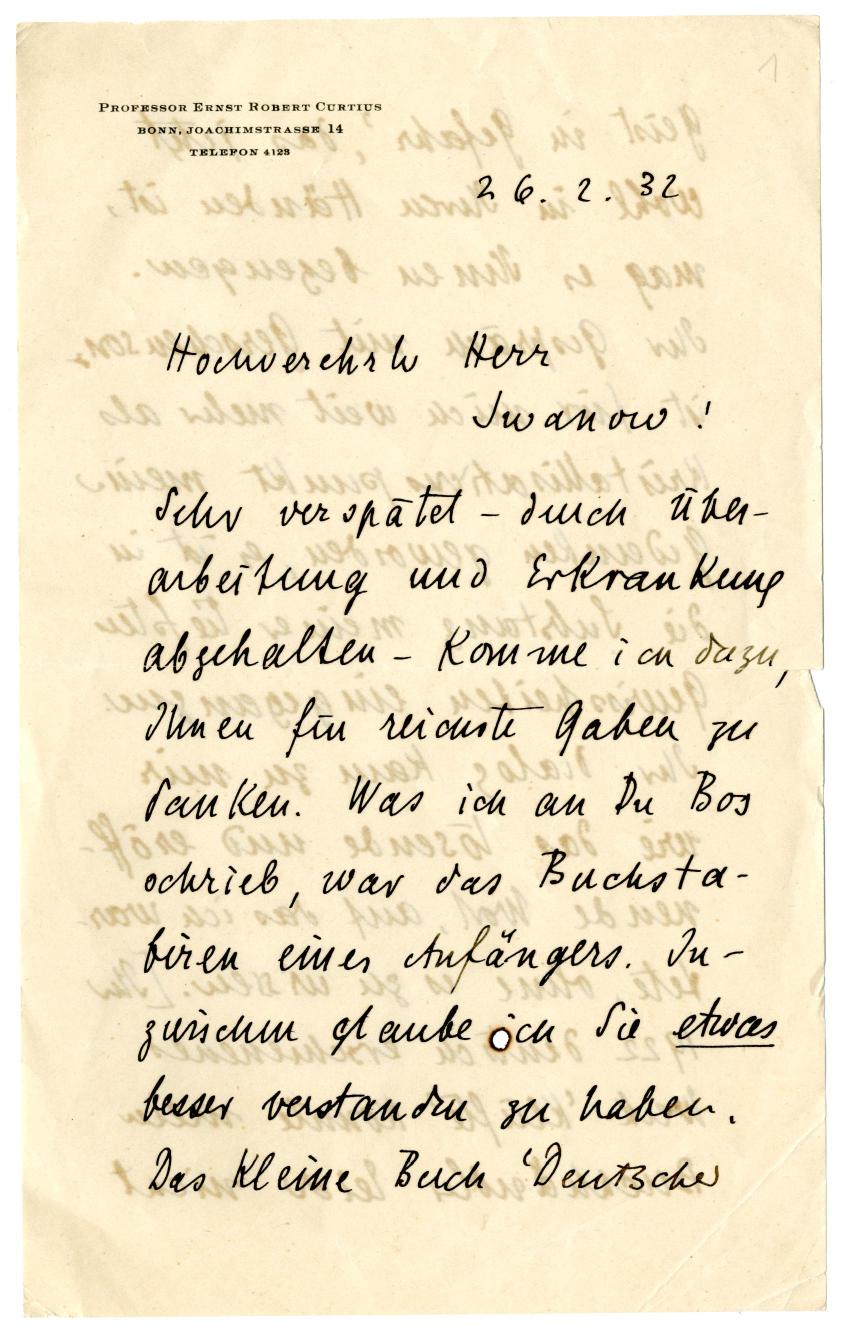 1
PROFESSOR ERNST ROBERT CURTIUS
BONN, JOACHIMSTRASSE 14
TELEFON 4123
26. 2. 32
Hochverehrter Herr
Iwanow!
Sehr verspätet – durch Über-
arbeitung und Erkrankung
abgehalten – komme ich dazu,
Ihnen für reichste Gaben zu
danken. Was ich an Du Bos
schrieb, war das Buchsta-
biren eines Anfängers. In-
zwischen glaube ich Sie etwas
besser verstanden zu haben.
Das kleine Buch 'Deutscher